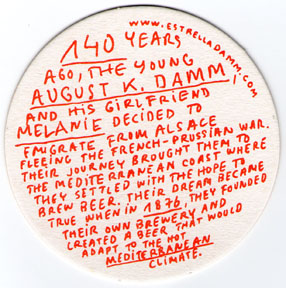 www.estrelladamm.com
140 YEARS
AGO, THE YOUNG
AUGUST K. DAMM,
AND HIS GIRLFRIEND
MELANIE DECIDED TO
EMIGRATE FROM ALSACE
FLEEING THE FRENCH-PRUSSIAN WAR.
THEIR JOURNEY BROUGHT THEM TO
THE MEDITERRANEAN COAST WHERE
THEY SETTLED WITH THE HOPE TO
BREW BEER. THEIR DREAM BECAME
TRUE WHEN IN 1876, THEY FOUNDED
THEIR OWN BREWERY AND
CREATED A BEER THAT WOULD
ADAPT TO THE HOT
MEDITERRANEAN
CLIMATE.